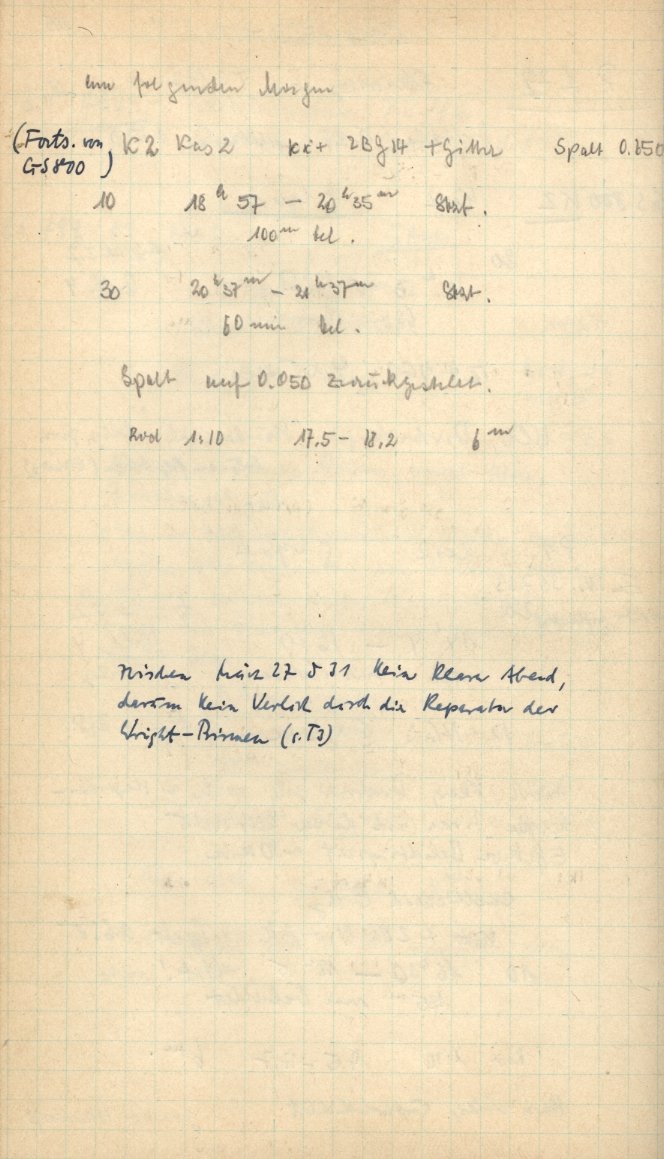 am folgenden Morgen
(Forts. von GS 800) K2 Kas 2 2BG14 + Gitter Spalt 0.
10 18 h 57 — 20 h 35 m
100 m bel.
30 20 h 37 m — 21 h 37 m
60 min bel.
Spalt auf 0.050 zurückgestellt.
1:10 17.5 – 18.2 6 m
zwischen März 27 & 31 kein klarer Abend,
darum kein Verlust durch die Reparatur der
Wright-Prismen (s. T3)